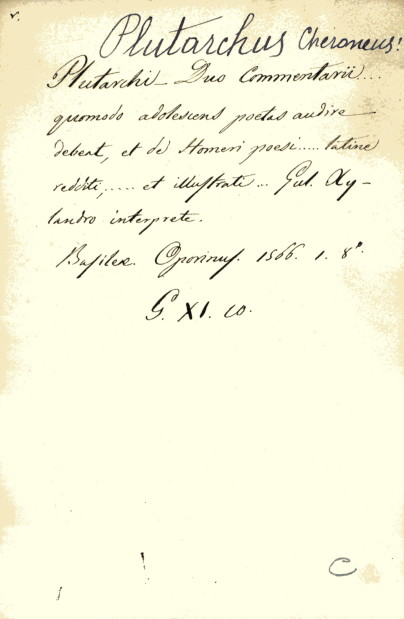 Plutarchus Cheroneus!
Plutarchi Duo Commentarii...
quomodo adolescens poetas audire
debeat, et de Homeri poesi..... latine
redditi,..... et illustrati... Gul. Xy-
landro interprete.
Basileæ. Oporinus. 1566. 1. 8º.
G. XI. 10.
C